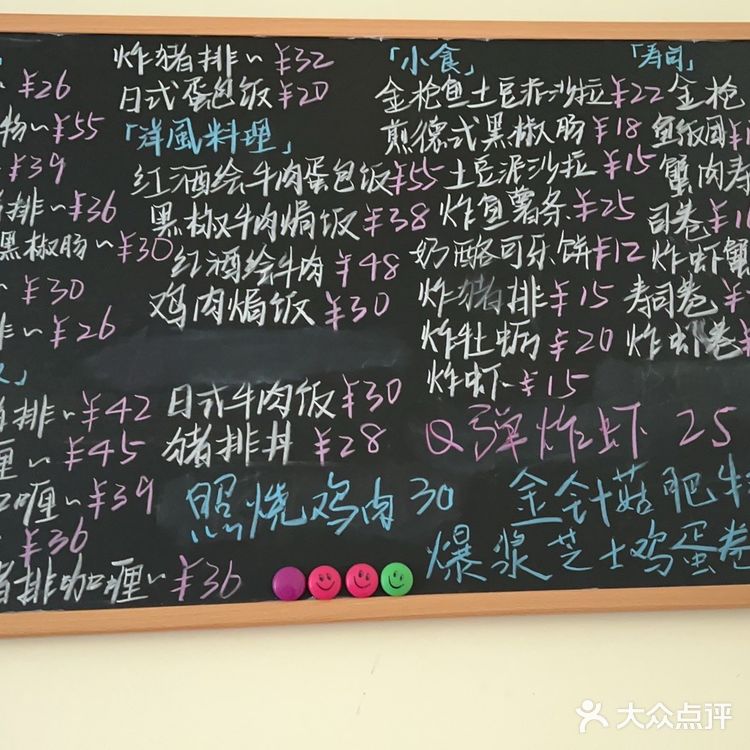 ¥26
物~¥55
¥39
排~¥36
黑椒肠~¥30
~¥30
~¥26
炸猪排~¥32
日式蛋包饭~¥20
「洋風料理」
红酒烩牛肉蛋包饭¥55
黑椒牛肉焗饭¥38
红酒烩牛肉¥48
鸡肉焗饭¥30
「小食」
金枪鱼土豆泥沙拉¥22
煎德式黑椒肠¥18
土豆泥沙拉¥15
炸鱼薯条¥25
奶酪可乐饼¥12
炸猪排¥15
炸牡蛎¥20
炸虾~¥15
「寿司」
金枪
鱼饭团¥1
蟹肉寿
司卷¥1
炸虾蟹
寿司卷¥
炸虾卷¥
」
猪排~¥42
喱~¥45
咖喱~¥39
¥36
猪排咖喱~¥36
日式牛肉饭¥30
猪排丼¥28
Q弹炸虾 25
照烧鸡肉30
金针菇肥牛
爆浆芝士鸡蛋卷
大众点评